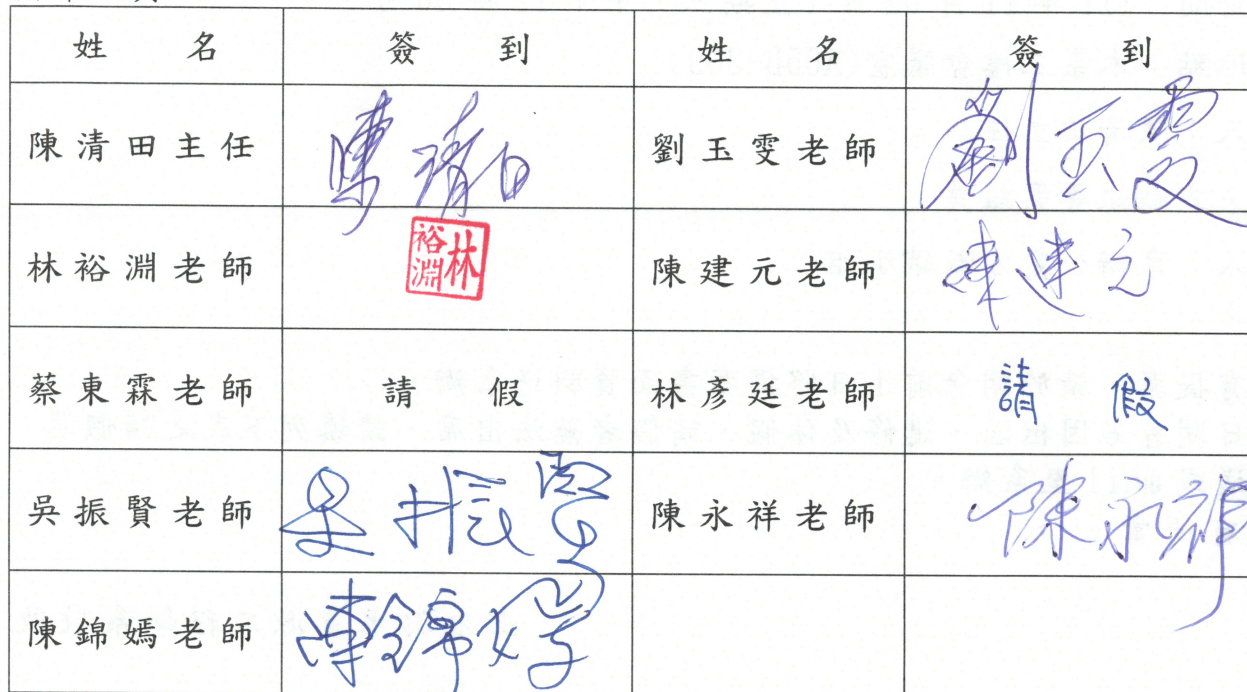 姓 名 簽 到 姓 名 簽 到
陳清田主任 陳清田 劉玉雯老師 劉玉雯
林裕淵老師 林裕淵 陳建元老師 陳建元
蔡東霖老師 請假 林彥廷老師 請假
吳振賢老師 吳振賢 陳永祥老師 陳永祥
陳錦嫣老師 陳錦嫣